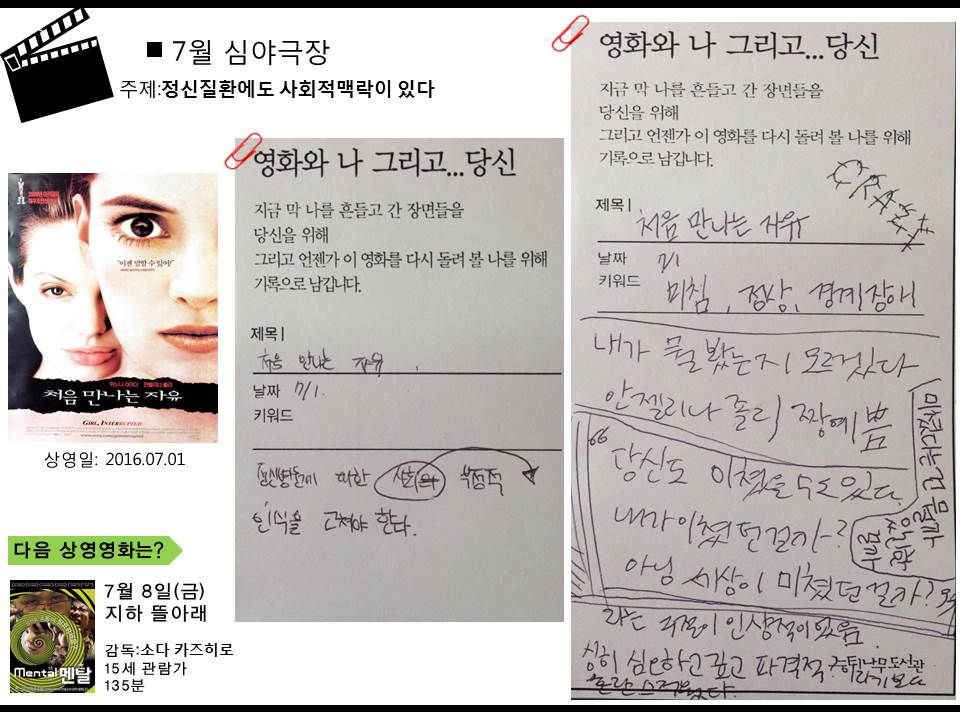 ■ 7월 심야극장
주제:정신질환에도 사회적맥락이 있다
"이젠 말할 수 있어!"
위노나 라이더 안젤리나 졸리
처음 만나는 자유
GIRL, INTERRUPTED
상영일: 2016.07.01
다음 상영영화는?
Mental 멘탈
7월 8일(금)
지하 뜰아래
감독:소다 카즈히로
15세 관람가
135분
영화와 나 그리고...당신
지금 막 나를 흔들고 간 장면들을
당신을 위해
그리고 언젠가 이 영화를 다시 돌려 볼 나를 위해
기록으로 남깁니다.
제목 |
처음 만나는 자유
날짜 7/1.
키워드
정신병동에 대한 사회의 부정적
인식을 고쳐야 한다.
영화와 나 그리고...당신
지금 막 나를 흔들고 간 장면들을
당신을 위해
그리고 언젠가 이 영화를 다시 돌려 볼 나를 위해
기록으로 남깁니다.
CRAZY
제목 |
처음 만나는 자유
날짜 7/1
키워드
미침, 정상, 경계장애
내가 뭘 봤는지 모르겠다
안젤리나 졸리 짱예쁨
미쳤다는건 뭘까
"당신도 미쳤을 수도 있다.
내가 미쳤던걸까?
아님 세상이 미쳤던 걸까?
라는 인상적이었음
심오하고 깊고 파격적